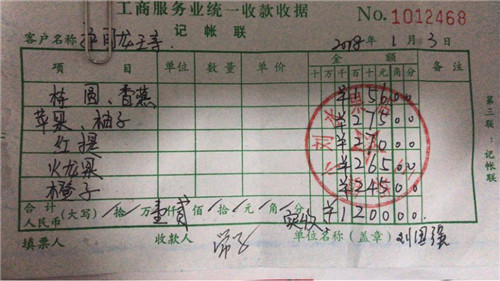 工商服务业统一收款收据 No. 1012468
记帐联
客户名称 龙王寺 2018年1月3日
项目 单位 数量 单价 金额 备注
十万千百十元角分
桂圆、香蕉 ¥156000
苹果、柚子 ¥27500
红提 ¥27000
火龙果 ¥26500
橙子 ¥24500
合计人民币(大写) 拾 万 壹仟 贰佰 拾 元 角 分 实收 ¥120000
填票人 收款人 单位名称(盖章) 刘国强
第三联:记帐联